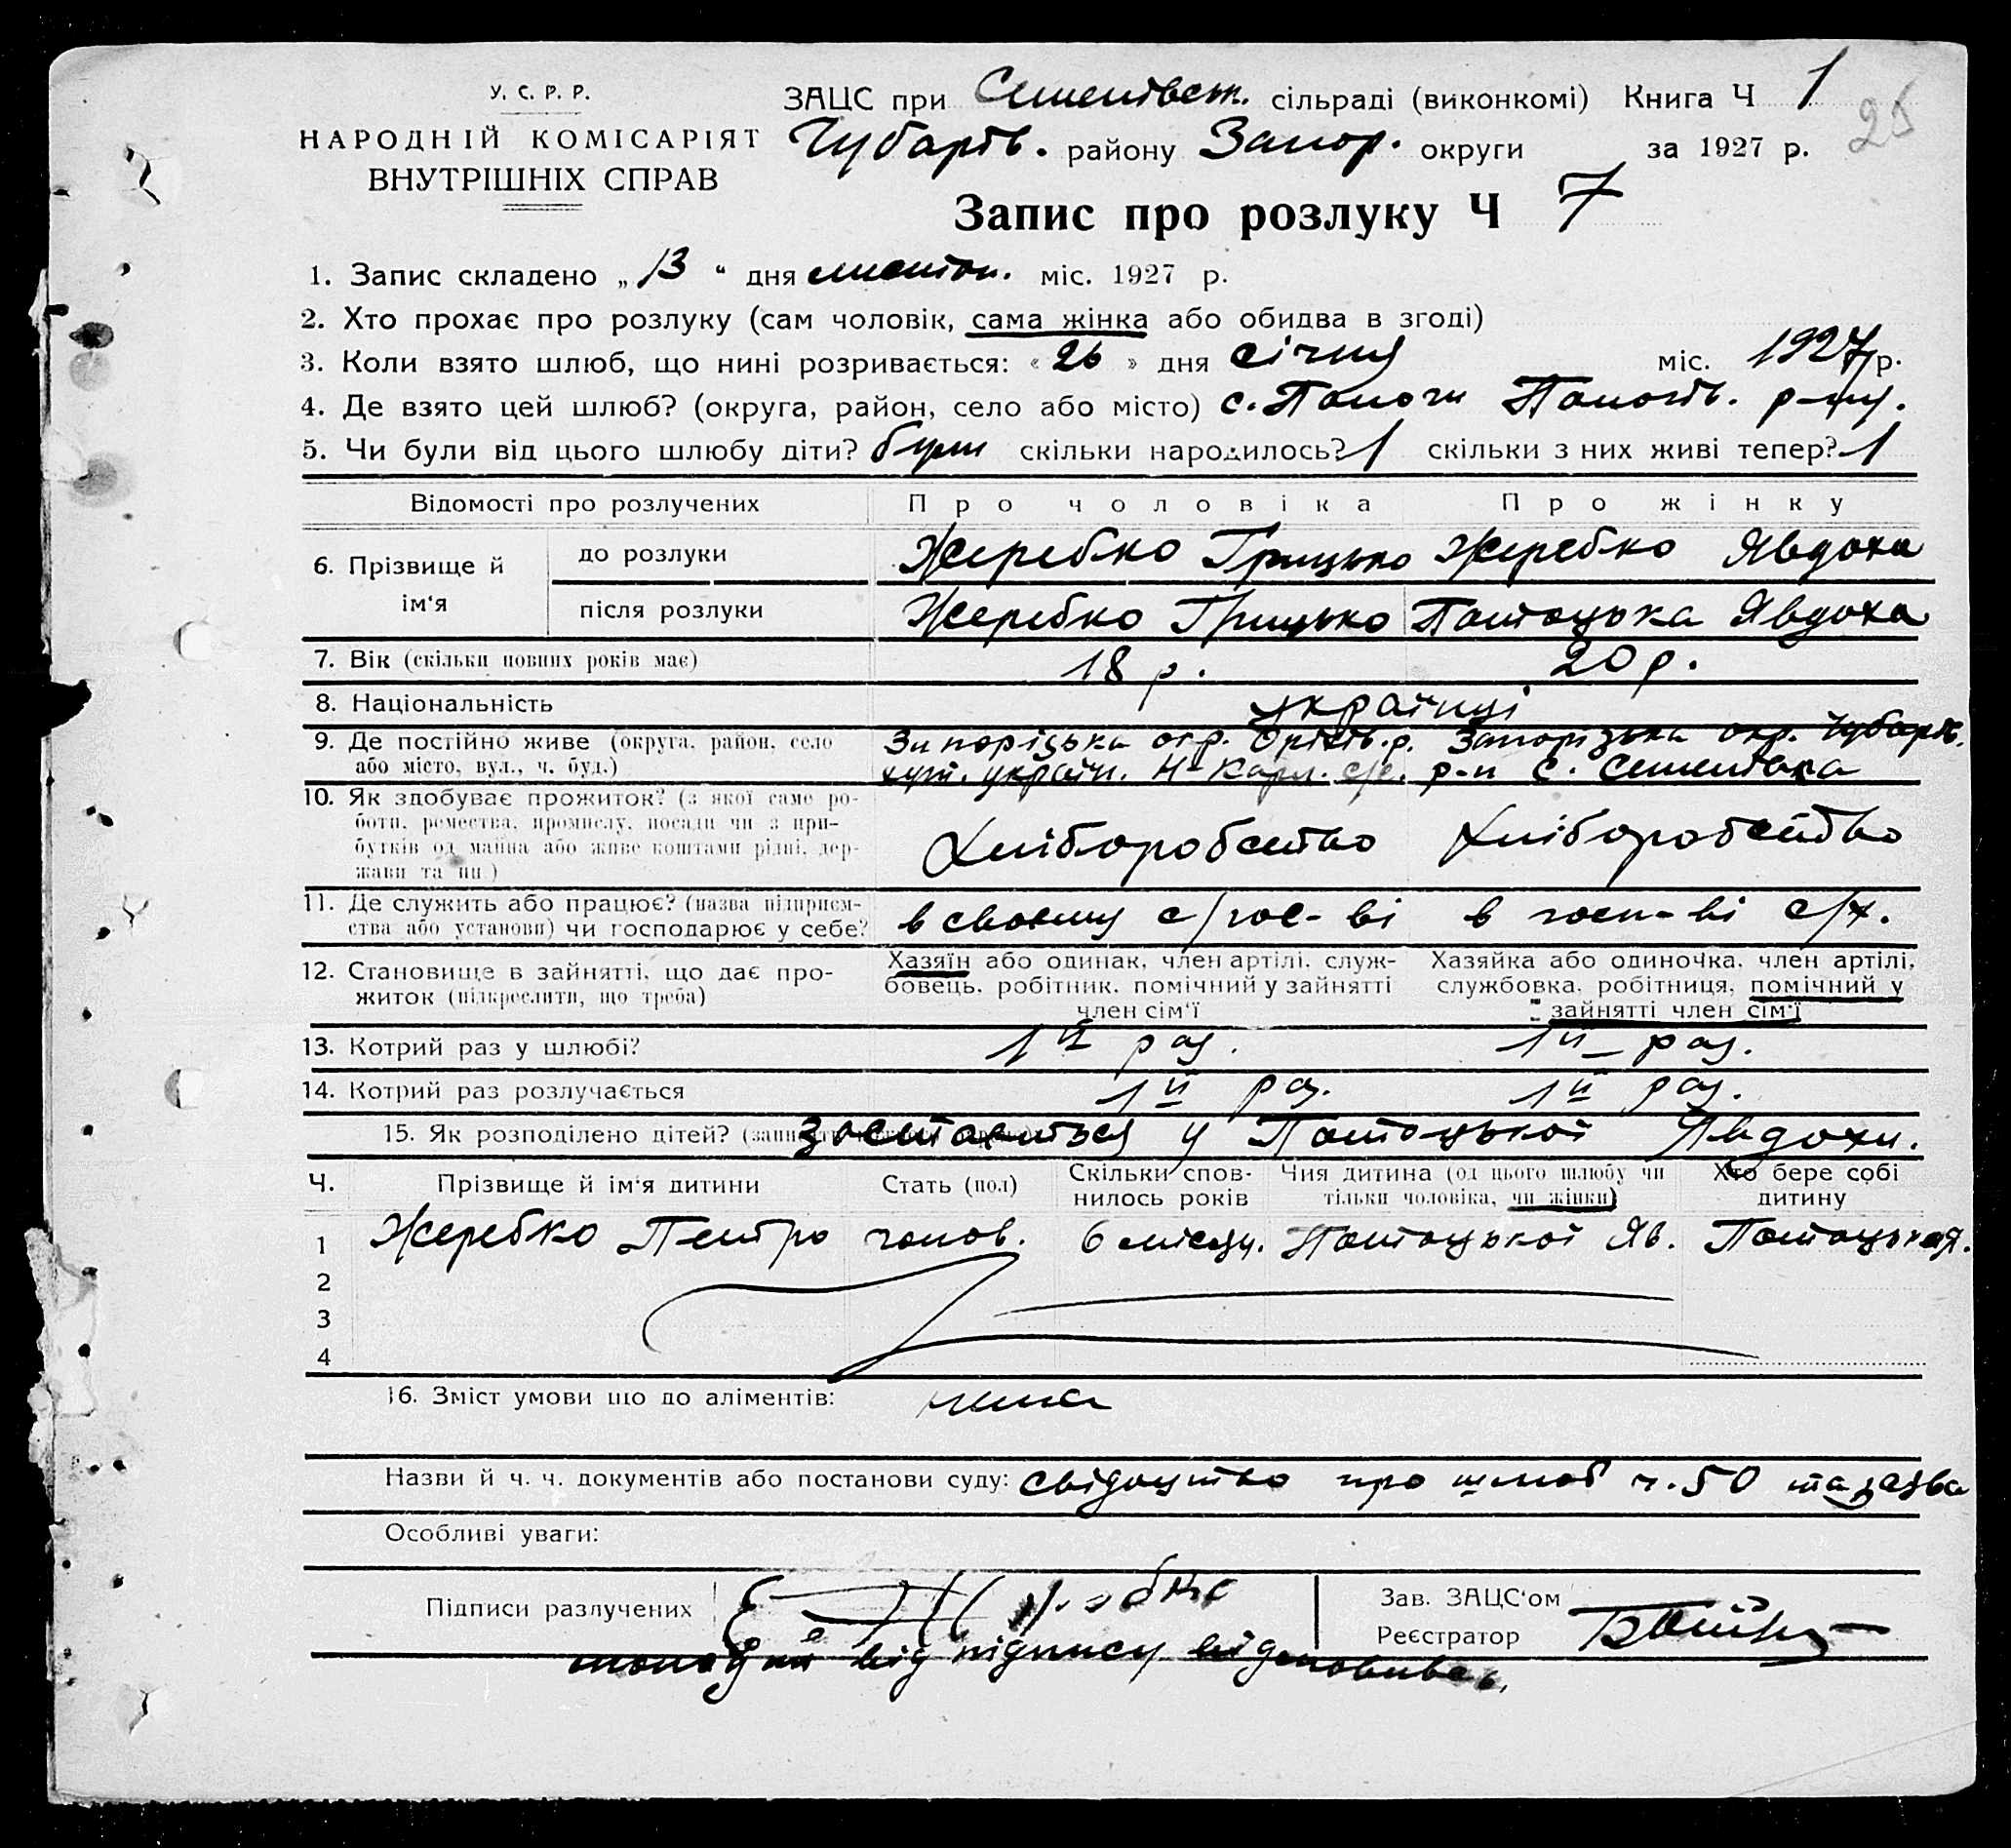 У. С. Р. Р.
НАРОДНІЙ КОМІСАРІЯТ
ВНУТРІШНІХ СПРАВ
ЗАЦС при Семенівськ. сільраді (виконкомі) Книга Ч 1
25
Чубарів. району Запор. округи за 1927 р.
Запис про розлуку Ч 7
1. Запис складено „ 13 “ дня листоп. міс. 1927 р.
2. Хто прохає про розлуку (сам чоловік, сама жінка або обидва в згоді)
3. Коли взято шлюб, що нині розривається: « 26 » дня січня міс. 1927 р.
4. Де взято цей шлюб? (округа, район, село або місто) с. Пологи Пологів. р-ну.
5. Чи були від цього шлюбу діти? були скільки народилось? 1 скільки з них живі тепер? 1
Відомості про розлучених Про чоловіка Про жінку
6. Прізвище й ім‘я до розлуки Жеребко Грицько Жеребко Явдоха
після розлуки Жеребко Грицько Потоцька Явдоха
7. Вік (скільки повних років має) 18 р. 20 р.
8. Національність українці
9. Де постійно живе (округа, район, село Запорізька окр. Оріхів. р. Запорізька окр. Чубарів.
або місто, вул., ч. буд.) хут. україн. Н-Карл. с/р. р-н с. Семенівка
10. Як здобуває прожиток? (з якої саме ро-
боти, ремества, промислу, посади чи з при-
бутків од майна або живе коштами рідні, дер-
жави та ин.) Хліборобство Хліборобство
11. Де служить або працює? (назва підприєм-
ства або установи) чи господарює у себе? в своєму с/гос-ві в госп-ві с/х.
12. Становище в зайнятті, що дає про-
житок (підкреслити, що треба)
Хазяїн або одинак, член артілі, служ-
бовець, робітник, помічний у зайнятті
член сім‘ї
Хазяйка або одиночка, член артілі,
службовка, робітниця, помічний у
зайнятті член сім‘ї
13. Котрий раз у шлюбі? 1й раз. 1й раз.
14. Котрий раз розлучається 1й раз. 1й раз.
15. Як розподілено дітей? зостається у Потоцької Явдохи.
Ч. Прізвище й ім‘я дитини Стать (пол) Скільки спов-
нилось років Чия дитина (од цього шлюбу чи
тільки чоловіка, чи жінки) Хто бере собі
дитину
1 Жеребко Петро чолов. 6 місяц. Потоцької Яв. Потоцька Я.
2
3
4
16. Зміст умови що до аліментів: нема
Назви й ч. ч. документів або постанови суду: свідоцтво про шлюб ч. 50 та заява
Особливі уваги:
Підписи разлучених
Зав. ЗАЦС‘ом
Реєстратор
від підпису відмовивсь.